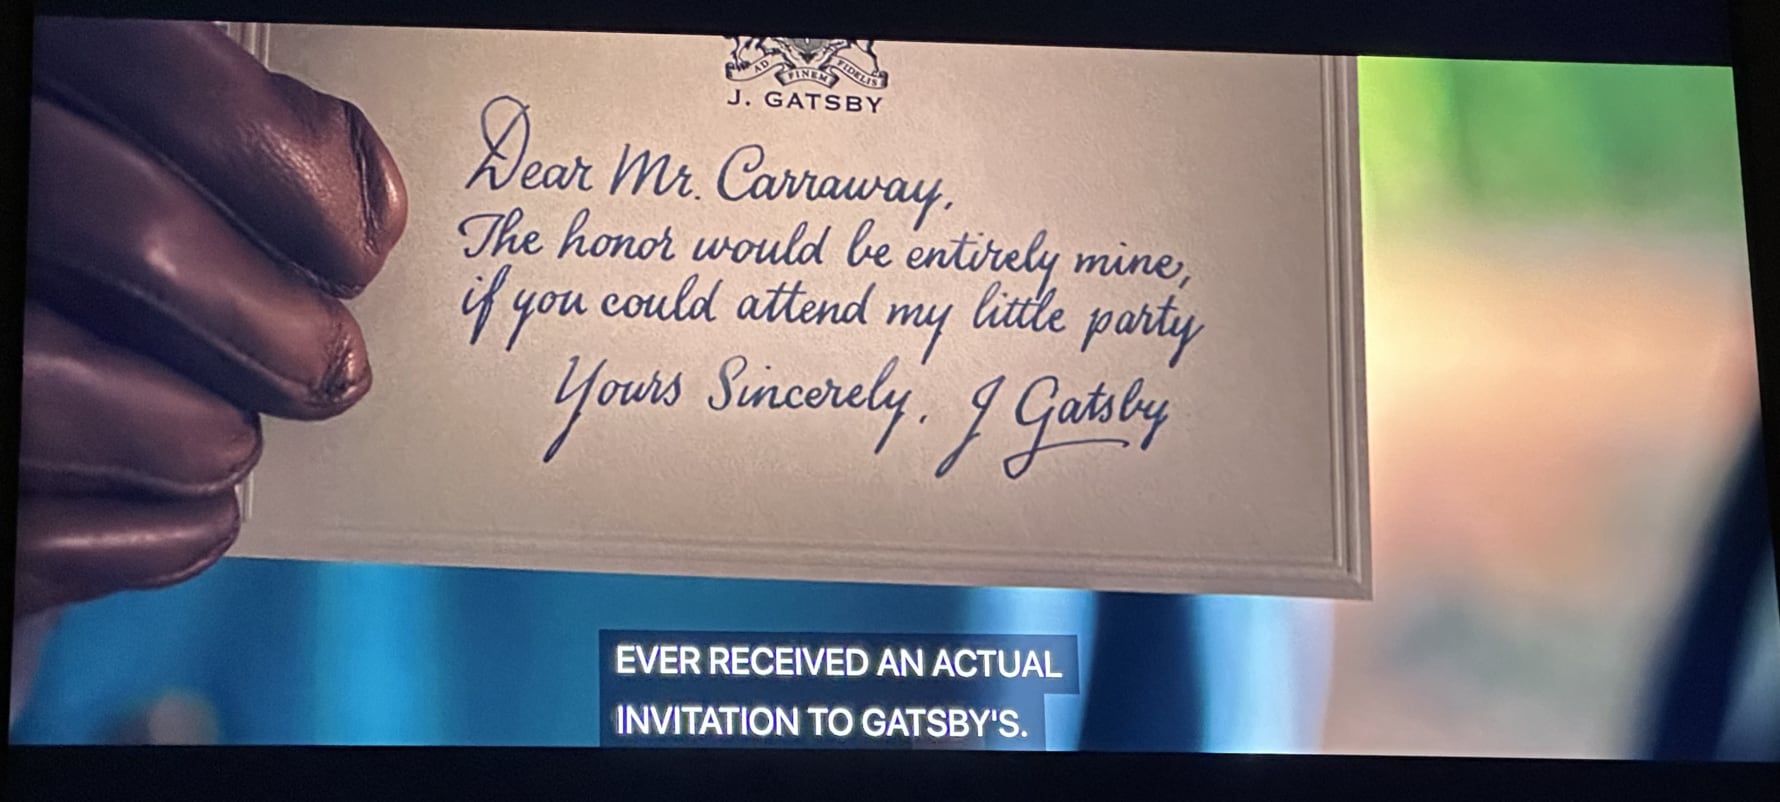 AD FINEM FIDELIS
J. GATSBY
Dear Mr. Carraway,
The honor would be entirely mine,
if you could attend my little party
Yours Sincerely, J Gatsby
EVER RECEIVED AN ACTUAL
INVITATION TO GATSBY'S.